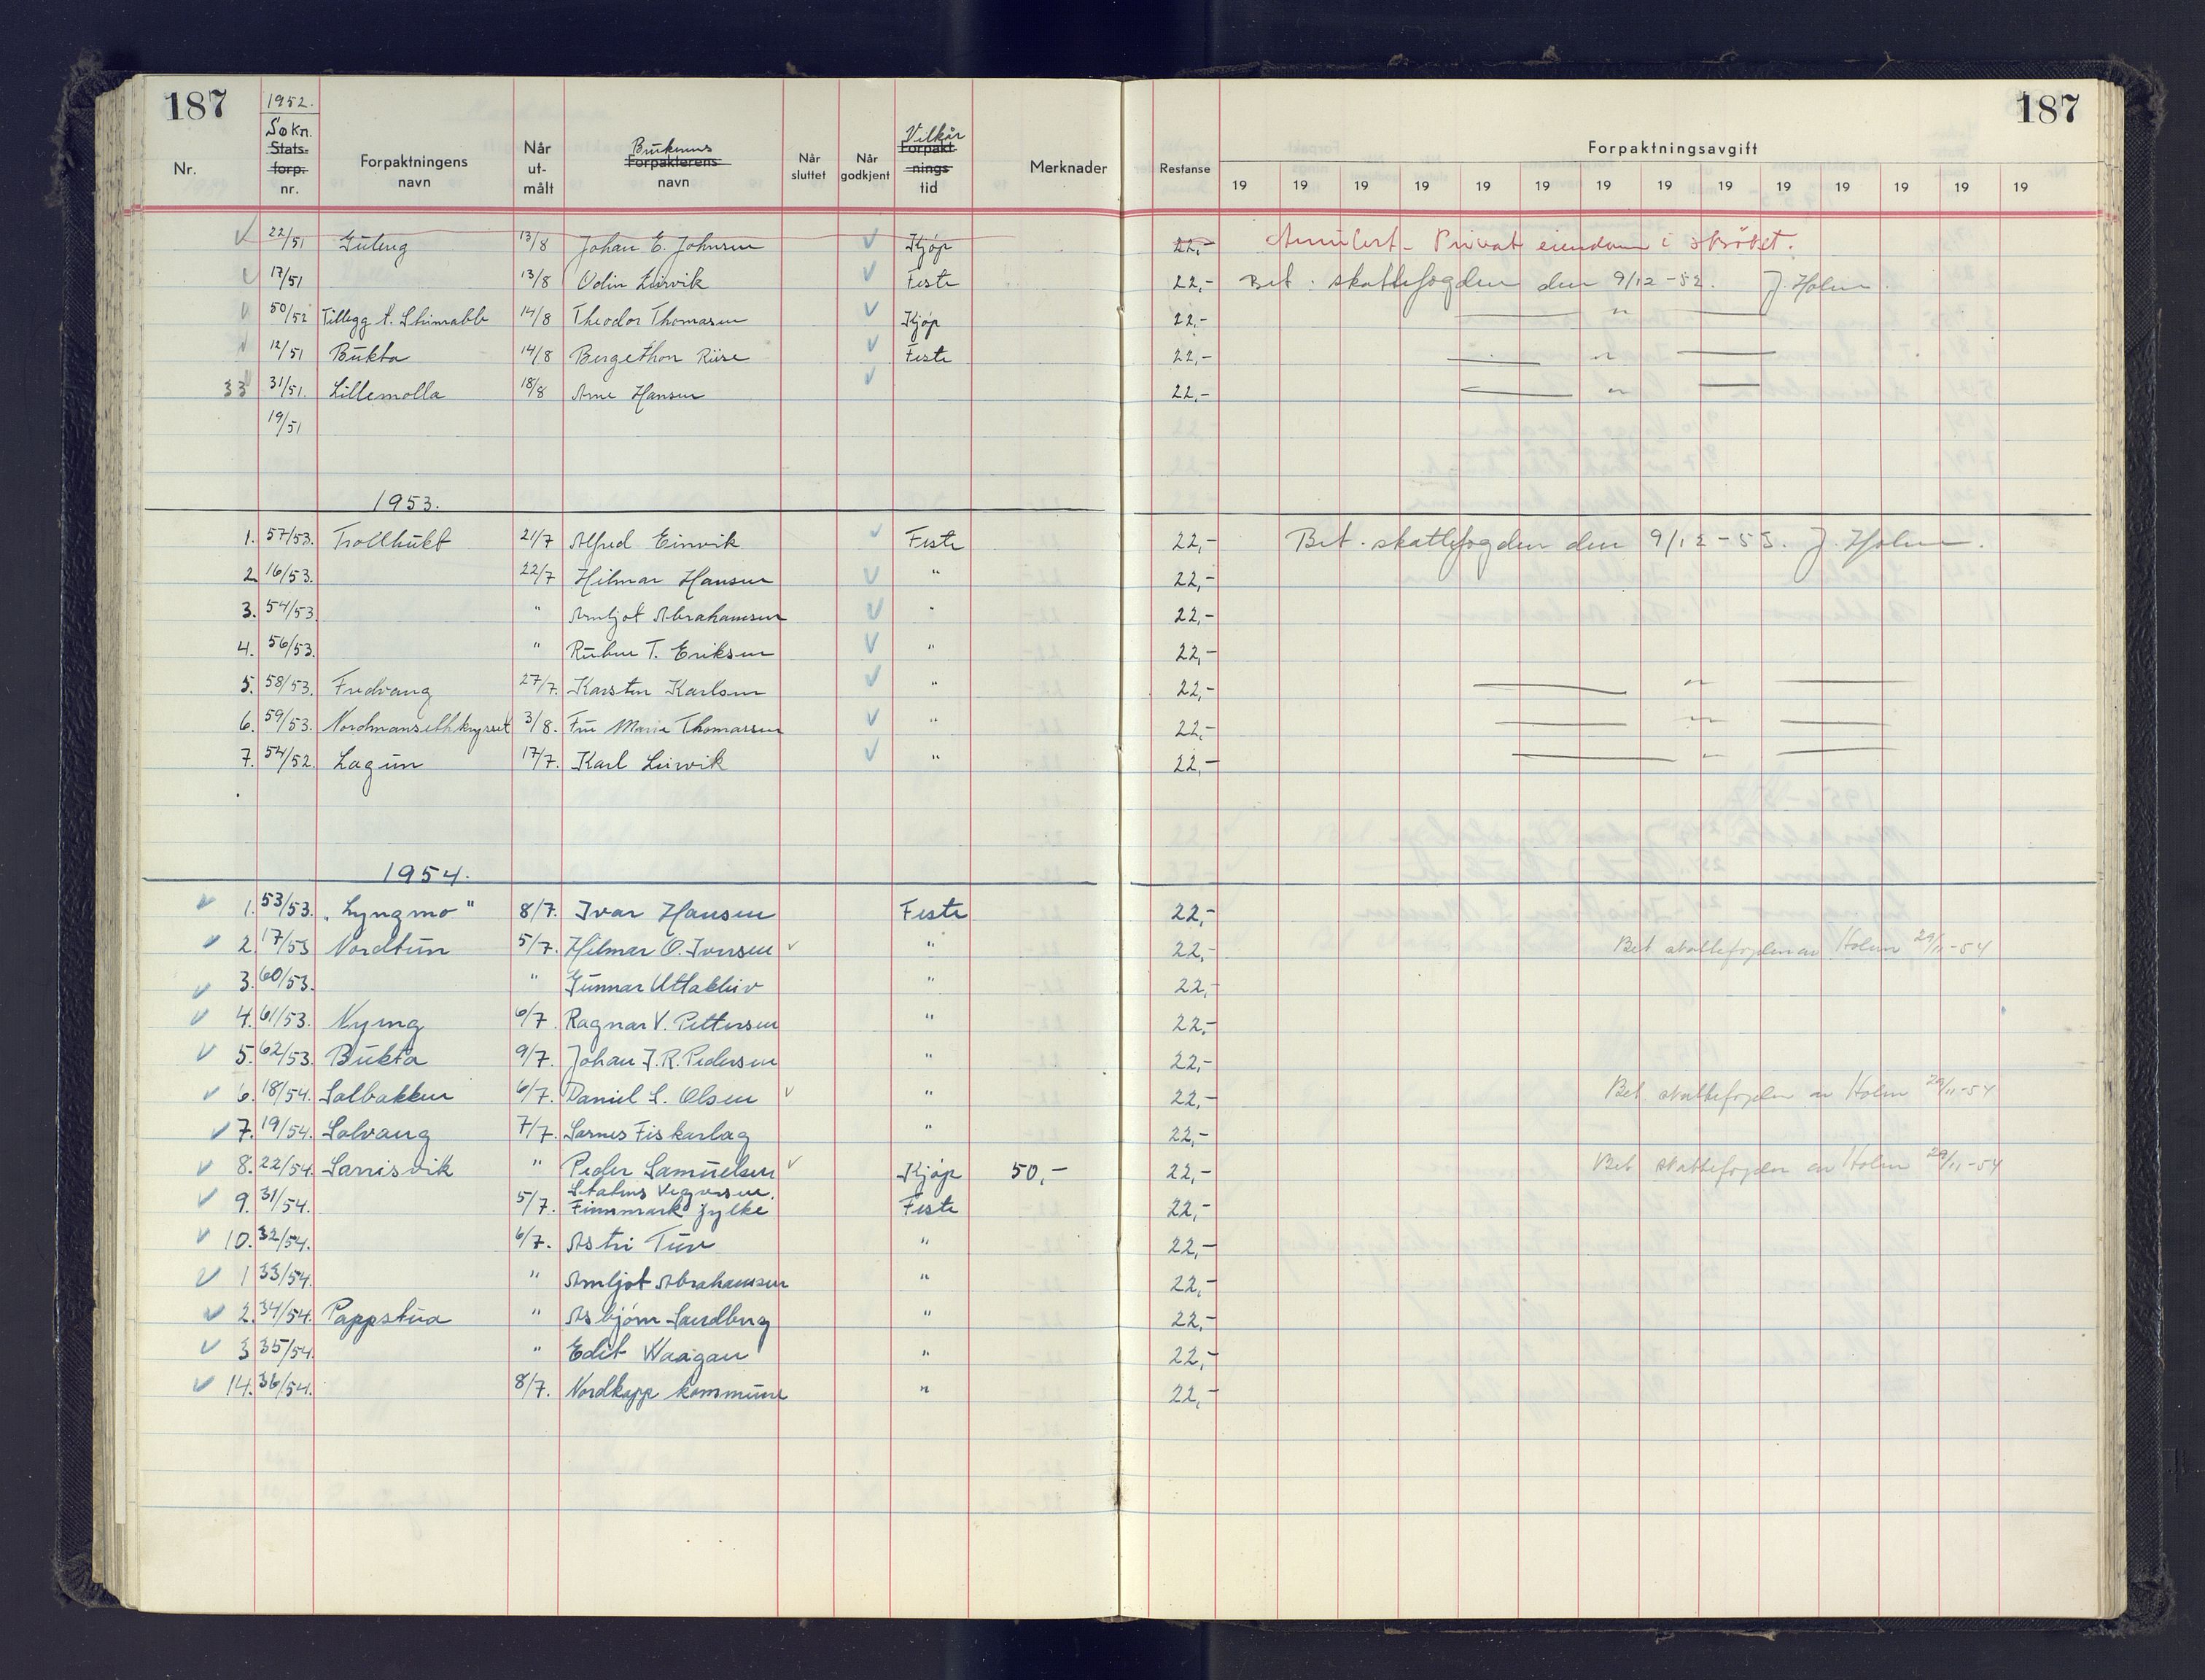 187
187
1952.
Nr.
Søkn.
Stats-
forp.
nr.
Forpaktningens
navn
Når
ut-
målt
Brukerens
Forpakterens
navn
Når
sluttet
Når
godkjent
Vilkår
Forpakt
nings
tid
Merknader
Restanse
Forpaktningsavgift
19 19 19 19 19 19 19 19 19 19 19 19 19 19
22/51 13/8 Johan E. Johnsen Kjøp 22,- Annulert - Privat eiendom i strøket.
17/51 13/8 Odin Leirvik Feste 22,- Bet. skattefogden den 9/12-52. J. Holm.
50/52 Tillegg t. 14/8 Theodor Thomasen Kjøp 22,- — " —
12/51 Bukta 14/8 Bergethon Riise Feste 22,- — " —
33 31/51. Lillemolla 18/8 Arne Hansen 22,- — " —
19/51
1953.
1. 57/53. Trollbukt 21/7 Alfred Einvik Feste 22,- Bet. skattefogden den 9/12-53. J. Holm.
2 16/53. 22/7 Hilmar Hansen " 22,-
3. 54/53. " Arnljot Abrahamsen " 22,-
4. 56/53. " Ruben T. Eriksen " 22,-
5. 58/53. Fredvang 27/7. Karsten Karlsen " 22,- — " —
6. 59/53. 3/8. Fru Marie Thomassen " 22,- — " —
7. 54/52. Lagun 17/7. Karl Leirvik " 22,- — " —
1954.
1. 53/53. "Lyngmo" 8/7. Ivar Hansen Feste 22,-
2. 17/53 Nordtun 5/7. Hilmar O. Iversen " 22,- Bet skattefogden av Holm 29/11-54
3. 60/53. " Gunnar Uttakleiv " 22,-
4. 61/53. Nyeng 6/7. Ragnar V. Pettersen " 22,-
5. 62/53. Bukta 9/7. Johan J.R. Pedersen " 22,-
6. 18/54. Solbakken 6/7. Daniel L. Olsen " 22,- Bet. skattefogden av Holm 29/11-54
7. 19/54. Solvang 7/7. Sarnes Fiskarlag " 22,-
8. 22/54. Sarnisvik " Peder Samuelsen Kjøp 50,- 22,- Bet. skattefogden av Holm 29/11-54
9. 31/54. 5/7. Statens Vegvesen, Finnmark fylke Feste 22,-
10. 32/54. 6/7. Astri " 22,-
1 33/54. " Arnljot Abrahamsen " 22,-
2. 34/54. Pappstua " Asbjørn Sandberg " 22,-
3 35/54. " Edit Waagan " 22,-
14. 36/54. 8/7. Nordkapp kommune " 22,-